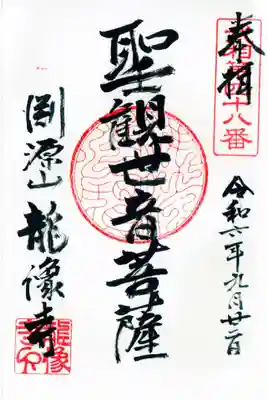 奉拝
十八番
令和六年九月廿二日
聖観世音菩薩
渕源山龍像寺
龍像